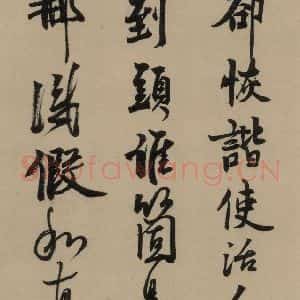 卻恢諧使活
到頭誰箇是
都濺假和
ShufaWang.CN